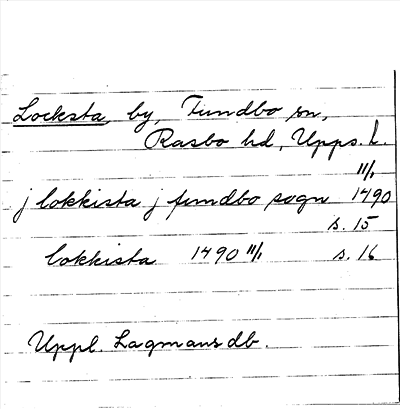 Locksta, by, Fundbo sn,
Rasbo hd, Upps. L.
11/1
j lokkista j fundbo sogn 1490
s. 15
lokkista 1490 11/1 s. 16
Uppl. Lagmans db.